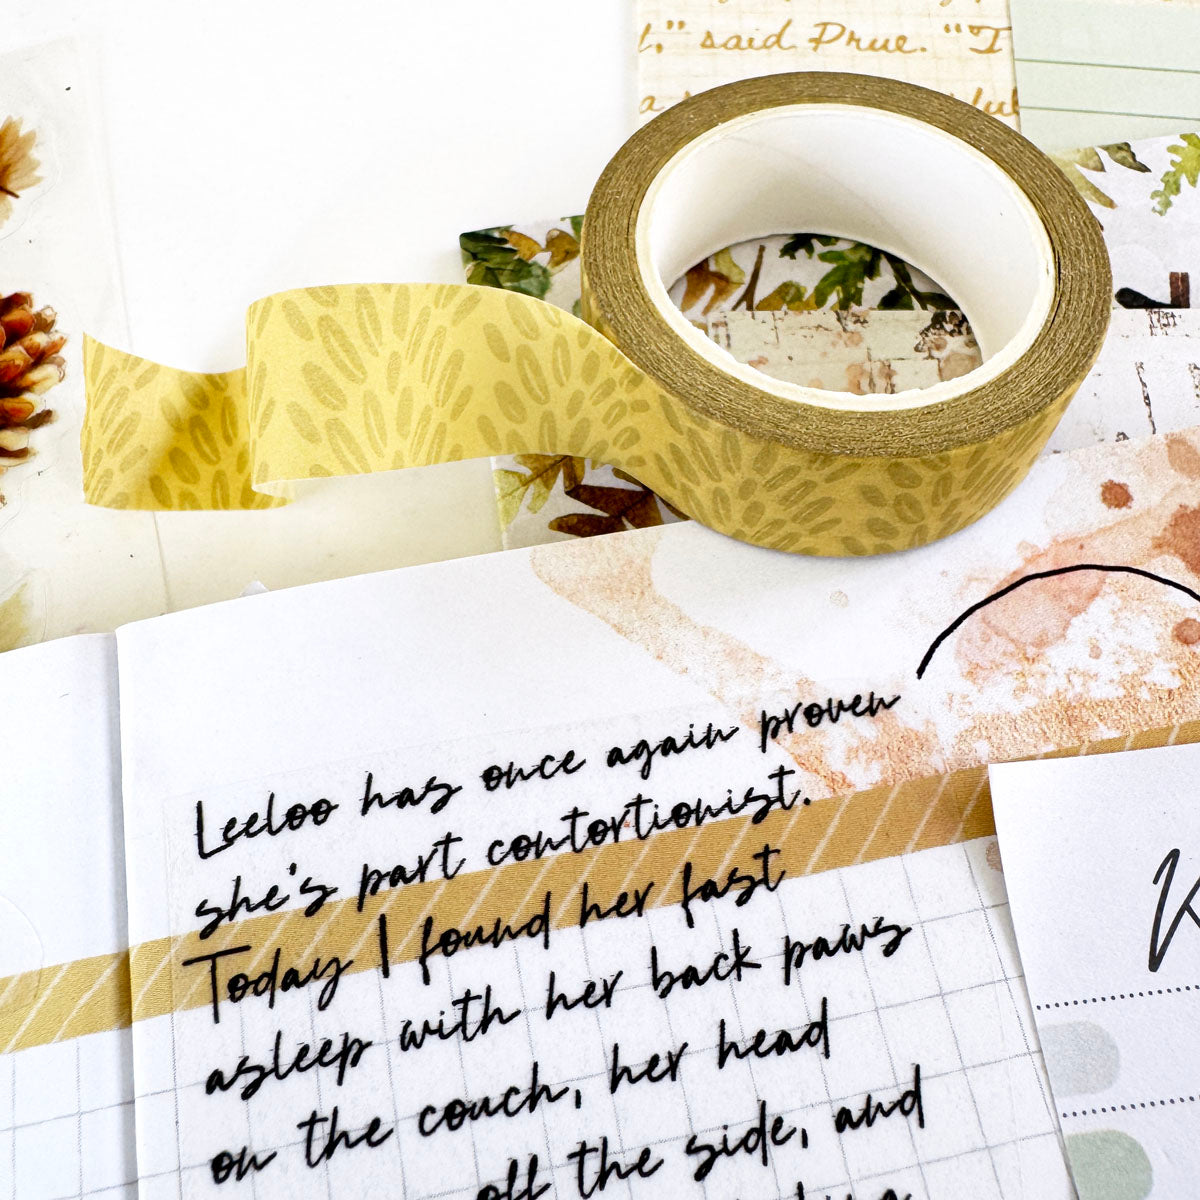 ," said Prue. "I
Leeloo has once again proven
she's part contortionist.
Today I found her fast
asleep with her back paws
on the couch, her head
off the side, and